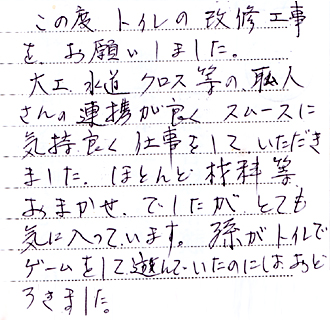 この度 トイレの 改修工事
を お願いしました。
大工 水道 クロス 等の、職人
さんの連携が良く スムースに
気持良く 仕事をして いただき
ました。ほとんど 材料等
おまかせ、でしたが とても
気に入っています。孫がトイレで
ゲームをして遊んでいたのにはおど
ろきました。